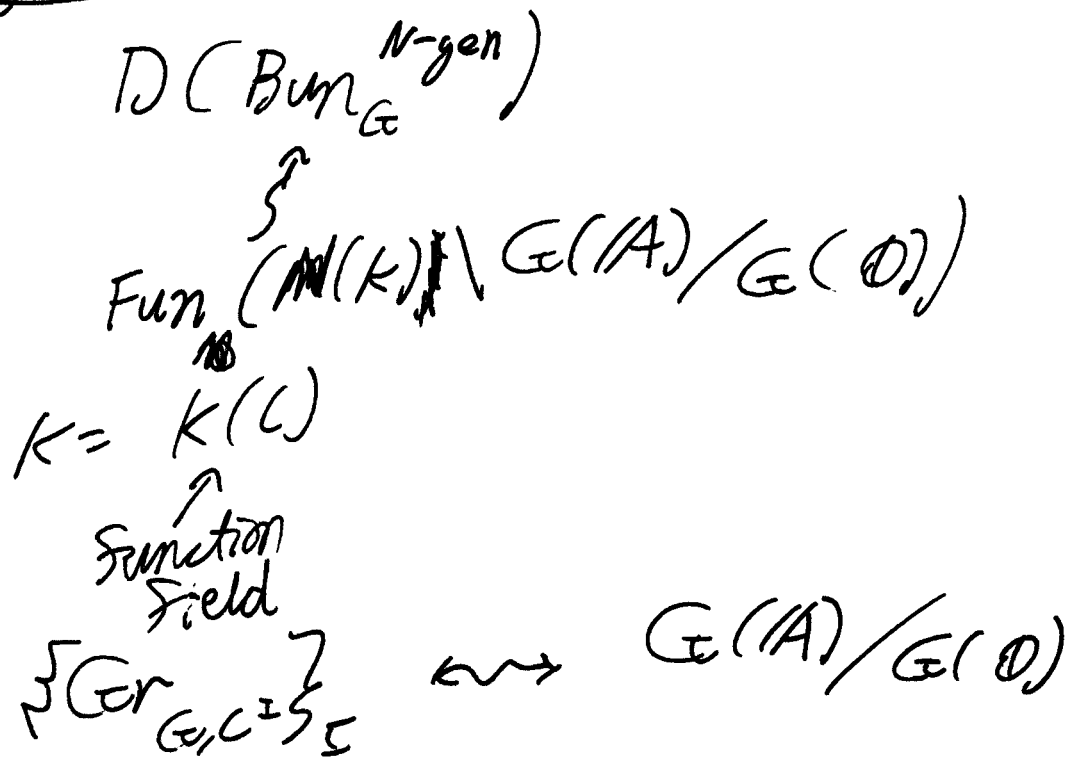 D(Bun_G^{N-gen})
Fun(N(K)\G(𝔸)/G(𝕆))
K = K(C)
function
field
{Gr_{G,C^I}}_I ↭ G(𝔸)/G(𝕆)